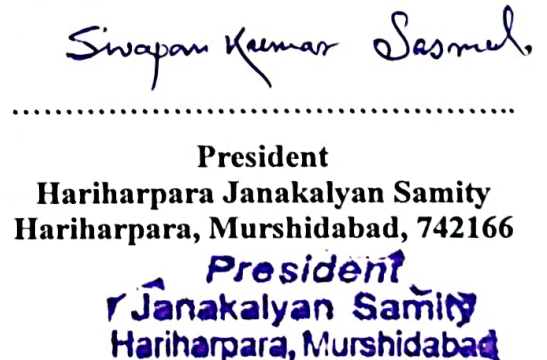 Swapan Kumar Sasmal.
..................................................
President
Hariharpara Janakalyan Samity
Hariharpara, Murshidabad, 742166
President
Janakalyan Samity
Hariharpara, Murshidabad